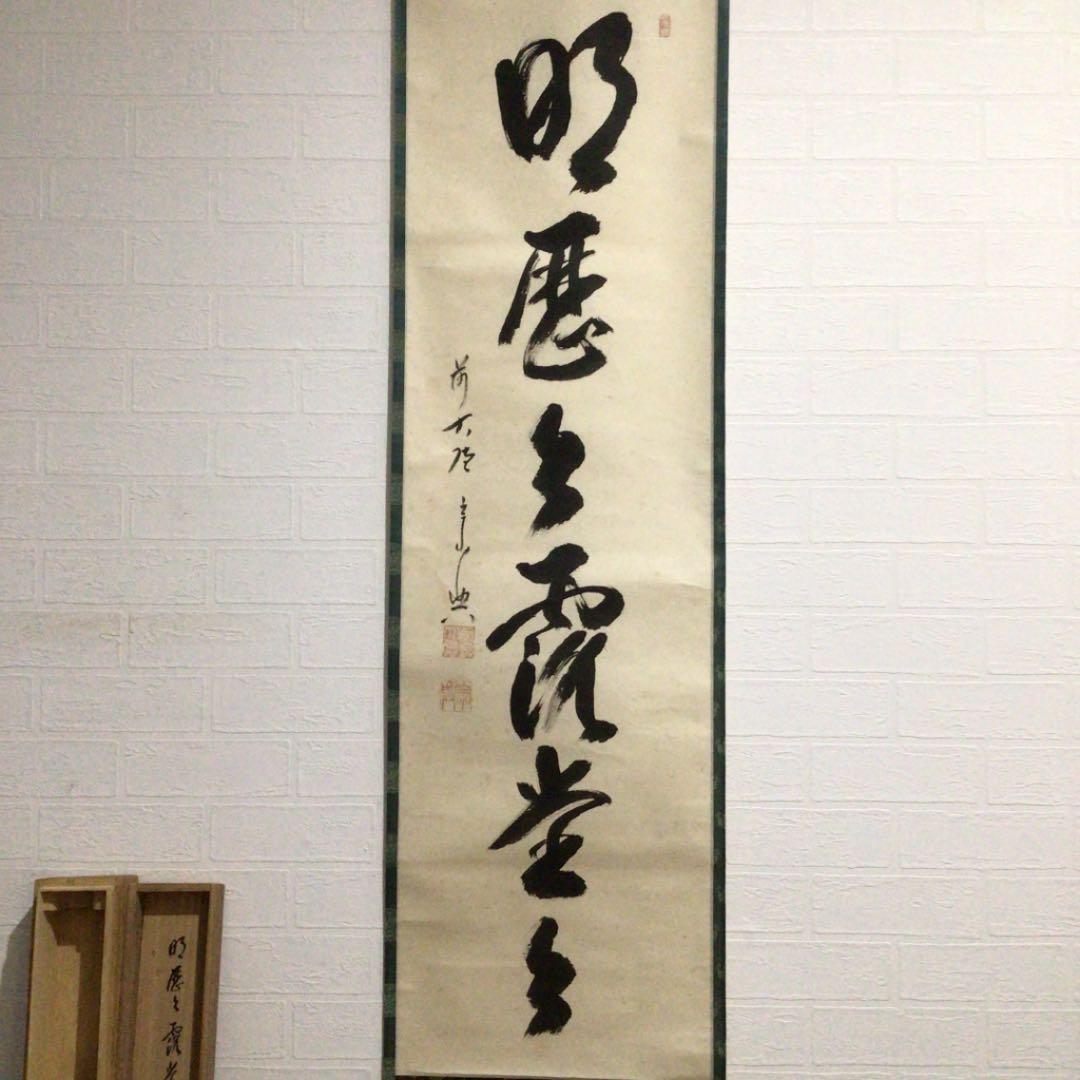 明歴々露堂々
前大徳
明歴々露堂